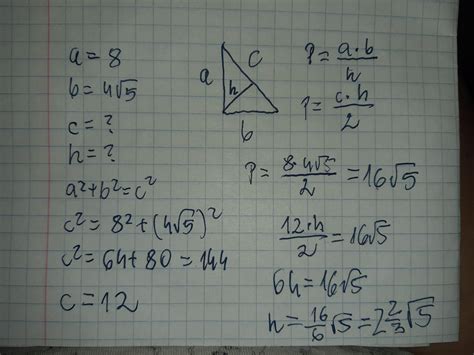 a = 8
b = 4√5
c = ?
h = ?
a²+b²=c²
c² = 8²+(4√5)²
c² = 64+80 = 144
c = 12
a
h
c
b
P = a·b/h
P = c·h/2
P = 8·4√5/2 = 16√5
12·h/2 = 16√5
6h = 16√5
h = 16/6√5 = 2 2/3√5